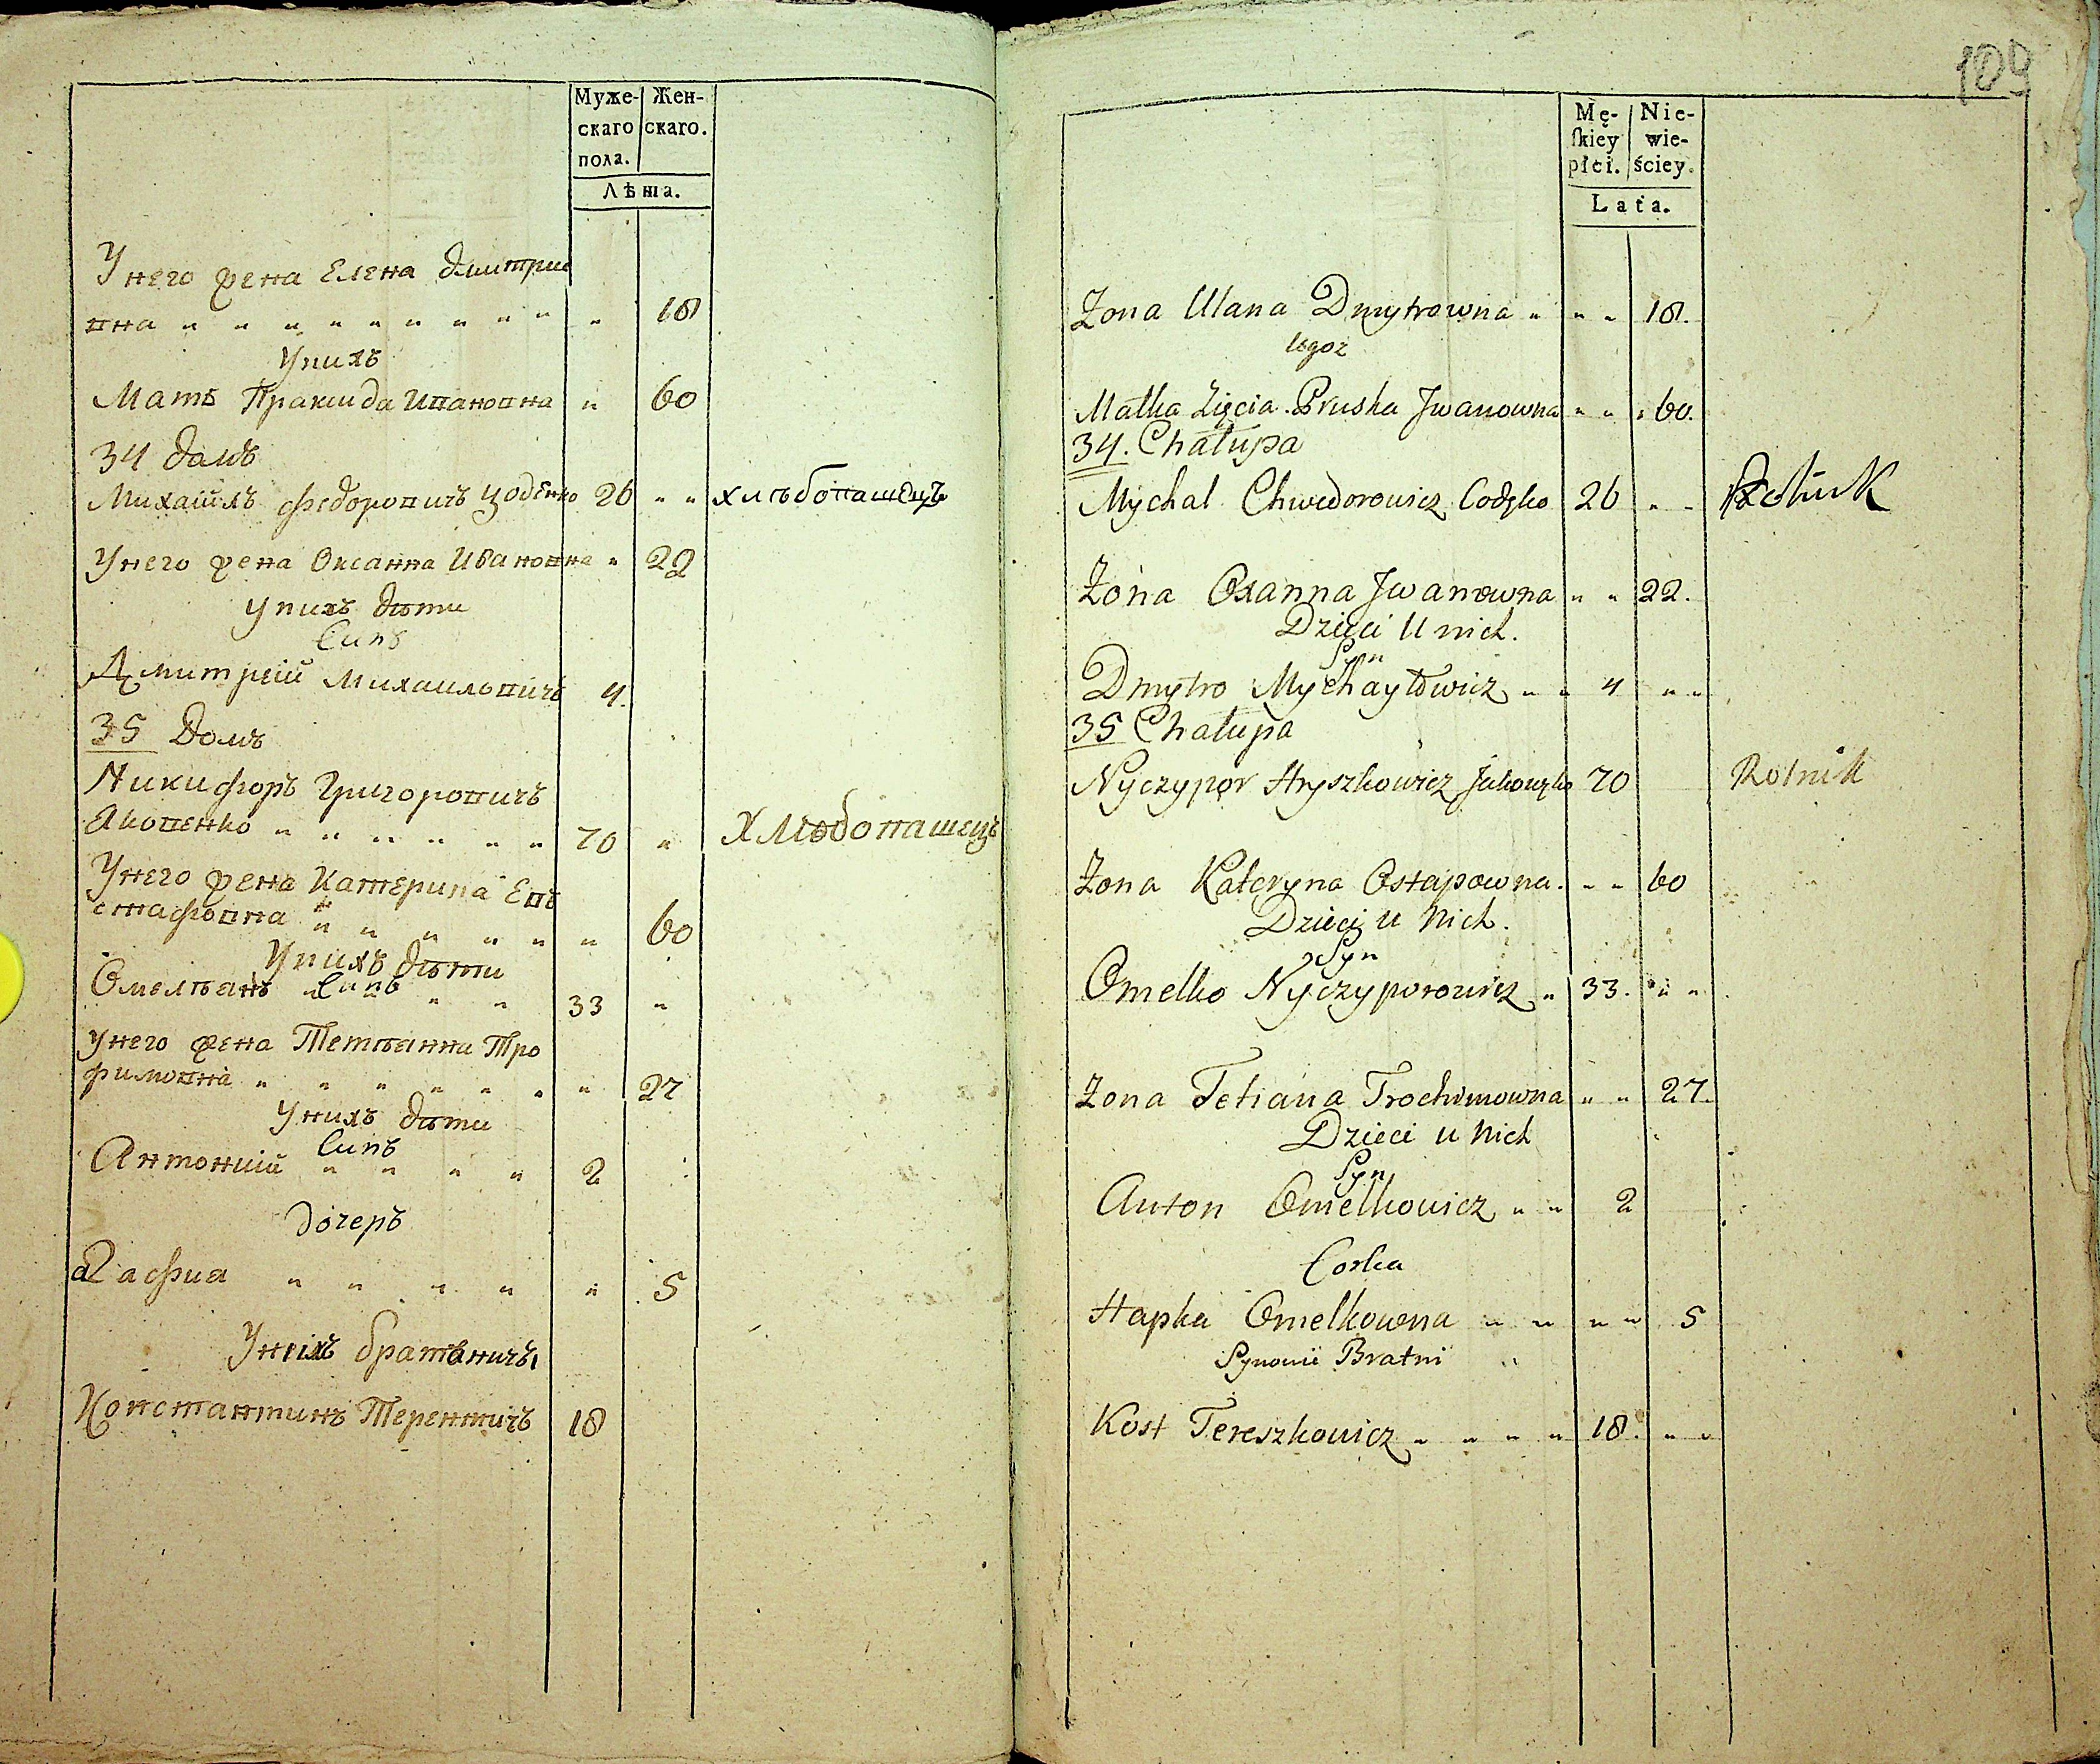 Муже- Жен-
скаго скаго.
пола.
Лѣта.
Унего жена Елена Дмитрие
вна " " " " " " " " " " 18
Унихъ
Мать Праксида Ивановна " 60
34 домъ
Михайлъ Федоровичъ Цоденко 26 " " хлѣбопашецъ
Унего жена Оксанна Ивановна " 22
Унихъ дѣти
Синъ
Дмитрей Михаиловичъ 4.
35 Домъ
Никифоръ Григоровичъ
Яковенко " " " " " " 70 " Хлѣбопашецъ
Унего жена Катерина Евъ
стафовна " " " " " " " 60
Унихъ дѣти
Синъ
Омелянъ " " " " 33 "
Унего жена Тетянна Тро
фимовна " " " " " " " 27
Унихъ дѣти
Синъ
Антоній " " " " 2
дочеръ
Гафия " " " " " 5
Унихъ братаничъ
Константинъ Терентичъ 18
109
Mę- Nie-
ſkiey wie-
płci. ściey.
Lata.
Żona Ulana Dmytrowna " " " 18.
tegoż
Matka Zięcia Pruska Jwanowna " " " 60.
34. Chałupa
Mychal Chwedorowicz Codęko 26 " " Rolnik
Żona Oxanna Jwanowna " " 22.
Dzieci U nich.
Syn
Dmytro Mychayłowicz " " 4 " "
35 Chałupa
Nyczypor Hryszkowicz Jakowęko 70 Rolnik
Żona Kateryna Ostapowna. " " 60
Dzieci u Nich.
Syn
Omelko Nyczyporowicz " 33. " "
Żona Tetiana Trochimowna " " 27.
Dzieci u Nich
Syn
Anton Omelkowicz " " 2
Corka
Hapka Omelkowna " " " " 5
Synowie Bratni "
Kost Tereszkowicz " " " " 18. " "